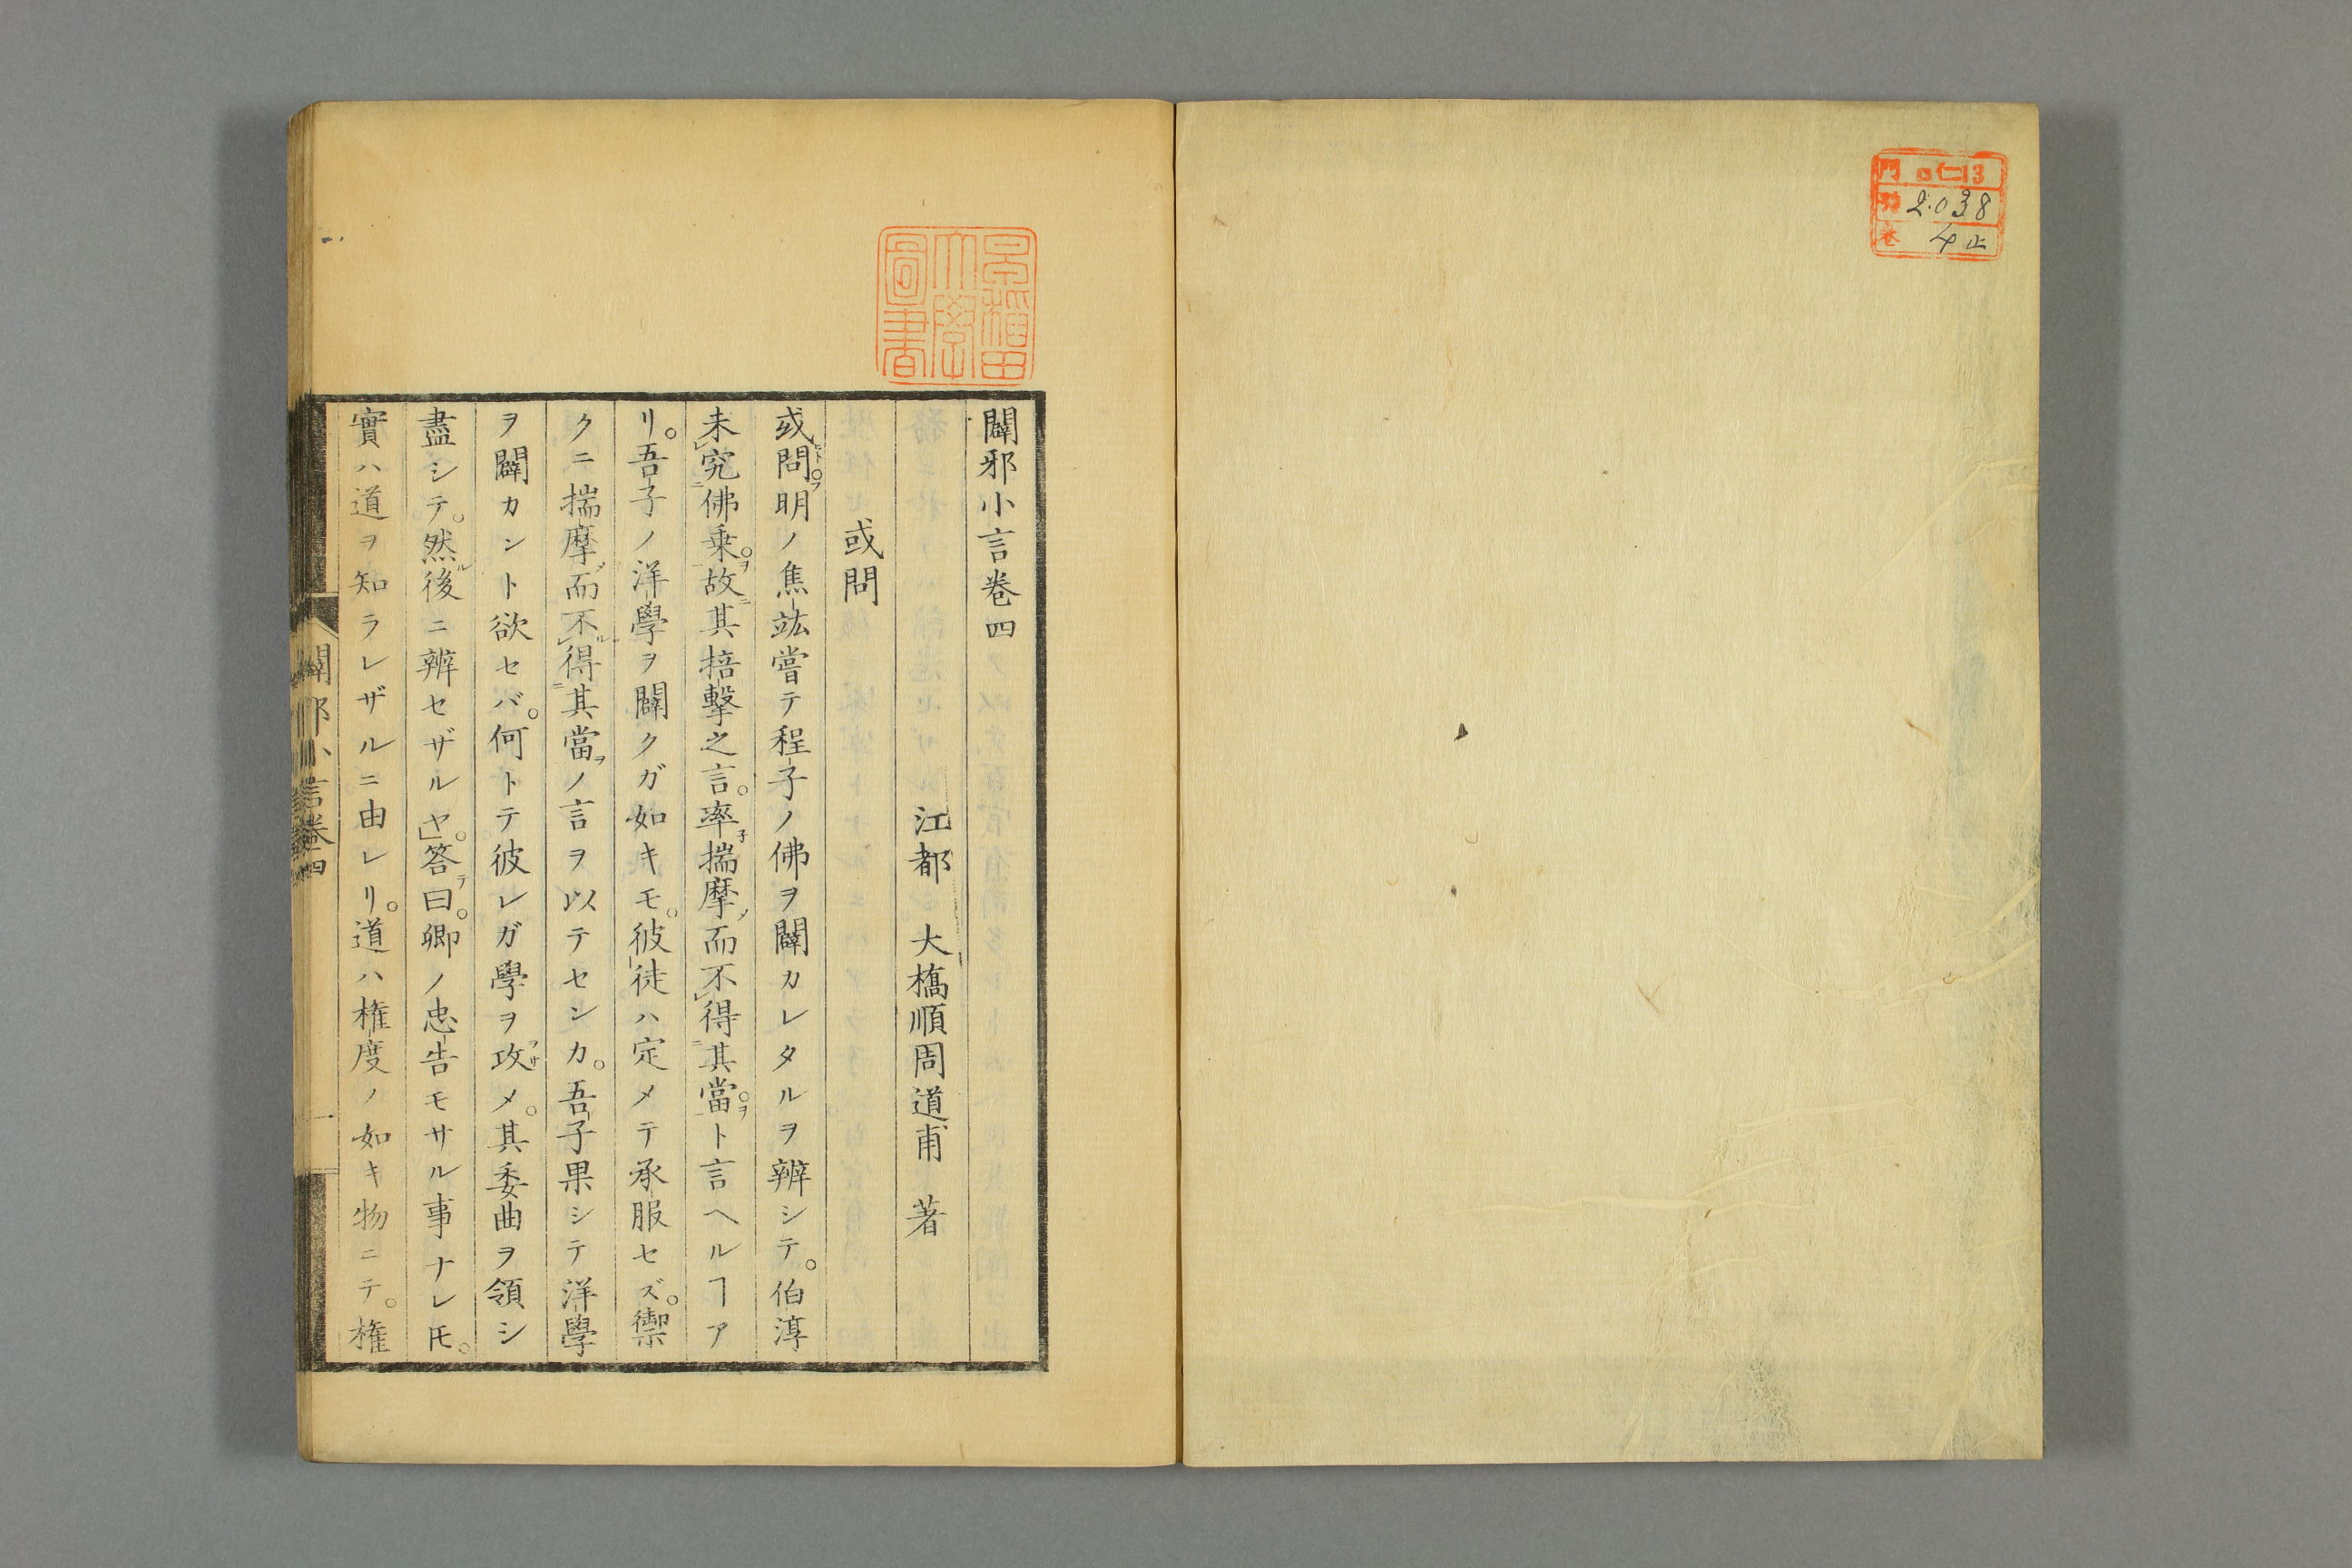 門 ロ仁13
號 2038
卷 4止
早稲田大學圖書
闢邪小言卷四
江都 大橋順周道甫 著
或問
或問。明ノ焦竑嘗テ程子ノ佛ヲ闢カレタルヲ辨シテ。伯淳
未究佛乗。故其掊擊之言。率揣摩而不得其當。ト言ヘルヿア
リ。吾子ノ洋學ヲ闢クガ如キモ。彼徒ハ定メテ承服セズ。禦
クニ揣摩而不得其當ノ言ヲ以テセンカ。吾子果シテ洋學
ヲ闢カント欲セバ。何トテ彼レガ學ヲ攻メ。其委曲ヲ領シ
盡シテ。然後ニ辨セザルヤ。」答曰。卿ノ忠告モサル事ナレ𪜈。
實ハ道ヲ知ラレザルニ由レリ。道ハ権度ノ如キ物ニテ。権
闢邪小言卷四
一